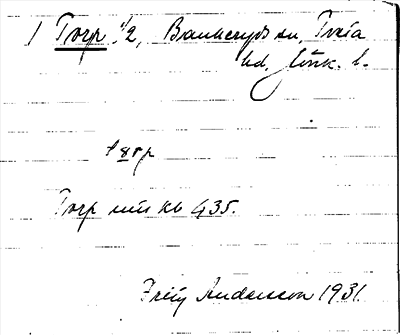 1 Torp 1/2, Bankeryds sn, Tveta
hd. Jönk. l.
Torp min kb 435.
Fritz Andersson 1931.